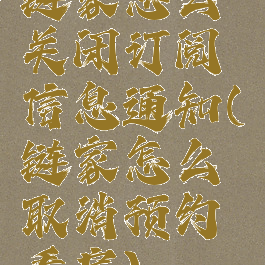 链家怎么
关闭订阅
信息通知(
链家怎么
取消预约
看房)